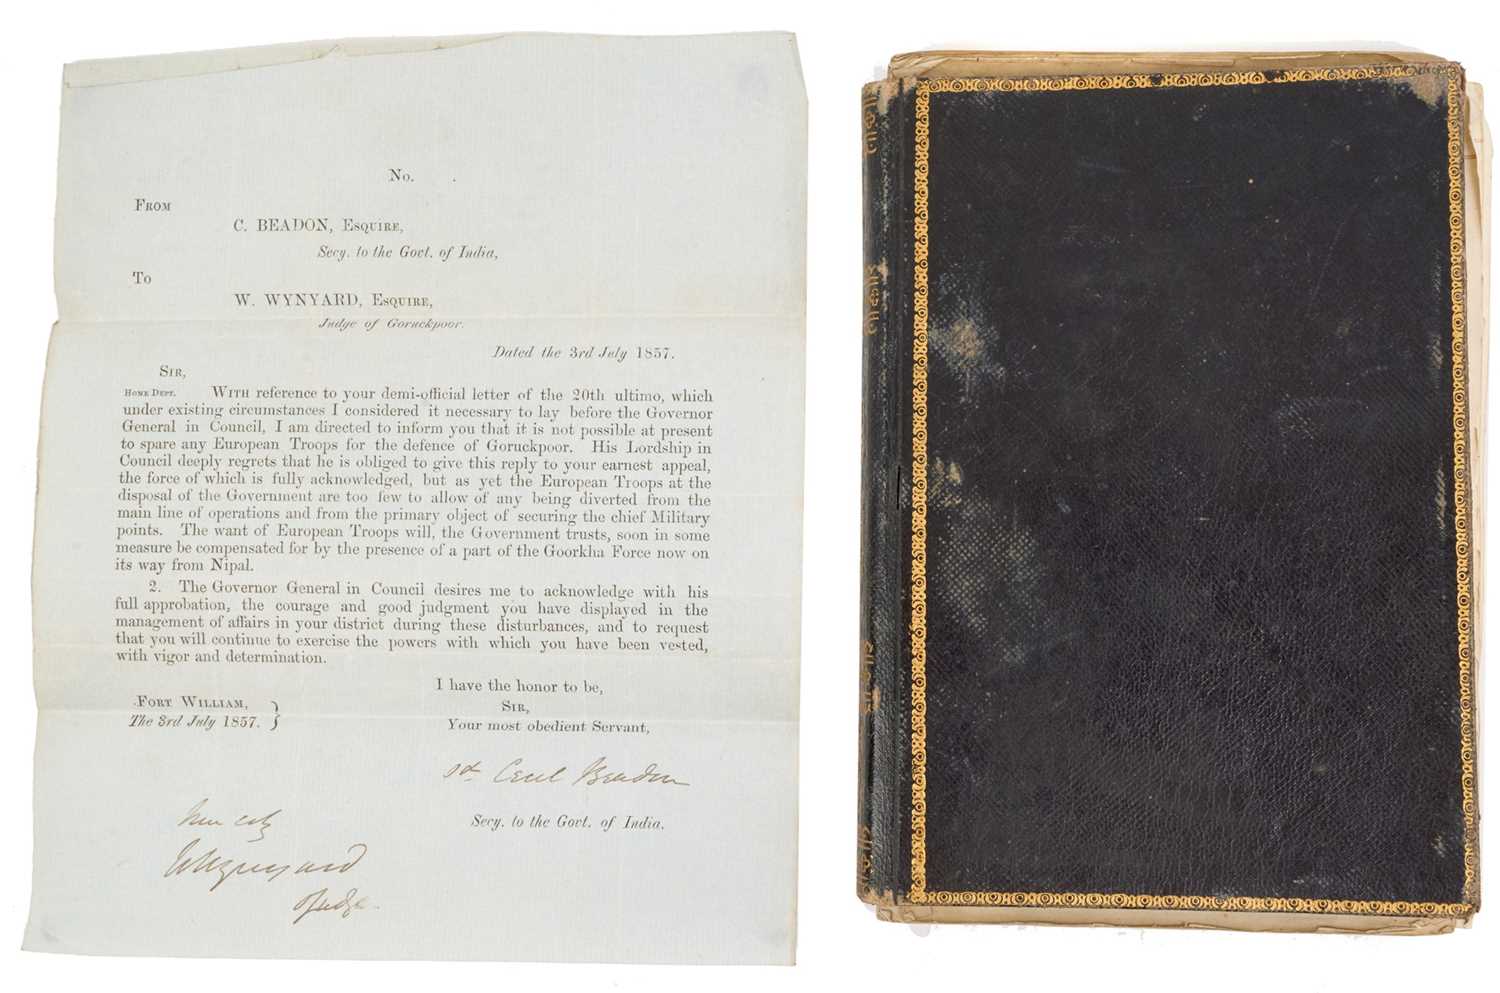 No.
FROM
C. BEADON, ESQUIRE,
Secy. to the Govt. of India,
To
W. WYNYARD, ESQUIRE,
Judge of Goruckpoor.
Dated the 3rd July 1857.
SIR,
HOME DEPT. WITH reference to your demi-official letter of the 20th ultimo, which
under existing circumstances I considered it necessary to lay before the Governor
General in Council, I am directed to inform you that it is not possible at present
to spare any European Troops for the defence of Goruckpoor. His Lordship in
Council deeply regrets that he is obliged to give this reply to your earnest appeal,
the force of which is fully acknowledged, but as yet the European Troops at the
disposal of the Government are too few to allow of any being diverted from the
main line of operations and from the primary object of securing the chief Military
points. The want of European Troops will, the Government trusts, soon in some
measure be compensated for by the presence of a part of the Goorkha Force now on
its way from Nipal.
2. The Governor General in Council desires me to acknowledge with his
full approbation, the courage and good judgment you have displayed in the
management of affairs in your district during these disturbances, and to request
that you will continue to exercise the powers with which you have been vested,
with vigor and determination.
I have the honor to be,
SIR,
Your most obedient Servant,
FORT WILLIAM,
The 3rd July 1857.
Sd. Cecil Beadon
Secy. to the Govt. of India.
True copy
W Wynyard
Judge